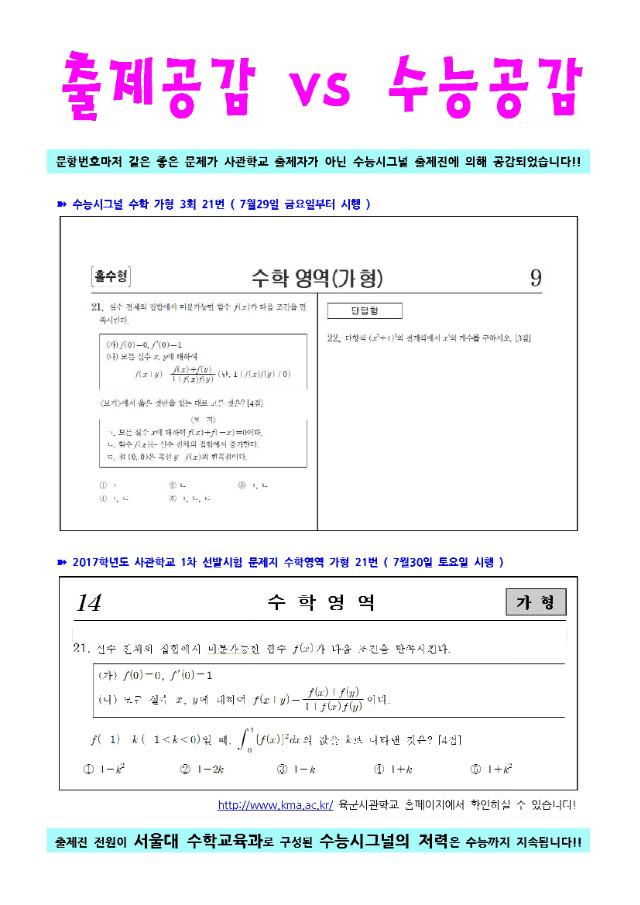 출제공감 vs 수능공감
문항번호마저 같은 좋은 문제가 사관학교 출제자가 아닌 수능시그널 출제진에 의해 공감되었습니다!!
➽ 수능시그널 수학 가형 3회 21번 ( 7월29일 금요일부터 시행 )
[홀수형] 수학 영역(가형) 9
21. 실수 전체의 집합에서 미분가능한 함수 f(x)가 다음 조건을 만
족시킨다.
(가) f(0)=0, f′(0)=1
(나) 모든 실수 x, y에 대하여
f(x+y) f(x)+f(y)/1+f(x)f(y) (단, 1+f(x)f(y)≠0)
<보기>에서 옳은 것만을 있는 대로 고른 것은? [4점]
<보 기>
ㄱ. 모든 실수 x에 대하여 f(x)+f(-x)=0이다.
ㄴ. 함수 f(x)는 실수 전체의 집합에서 증가한다.
ㄷ. 점 (0, 0)은 곡선 y f(x)의 변곡점이다.
① ㄱ ② ㄴ ③ ㄱ, ㄴ
④ ㄱ, ㄷ ⑤ ㄱ, ㄴ, ㄷ
단답형
22. 다항식 의 전개식에서 의 계수를 구하시오. [3점]
➽ 2017학년도 사관학교 1차 선발시험 문제지 수학영역 가형 21번 ( 7월30일 토요일 시행 )
14 수 학 영 역 가 형
21. 실수 전체의 집합에서 미분가능한 함수 f(x)가 다음 조건을 만족시킨다.
(가) f(0)=0, f′(0)=1
(나) 모든 실수 x, y에 대하여 f(x+y)=f(x)+f(y)/1+f(x)f(y) 이다.
f( 1) k ( 1<k<0)일 때, ∫₀¹{f(x)}²dx의 값을 k로 나타낸 것은? [4점]
① 1-k² ② 1-2k ③ 1-k ④ 1+k ⑤ 1+k²
http://www.kma.ac.kr/ 육군사관학교 홈페이지에서 확인하실 수 있습니다!
출제진 전원이 서울대 수학교육과로 구성된 수능시그널의 저력은 수능까지 지속됩니다!!